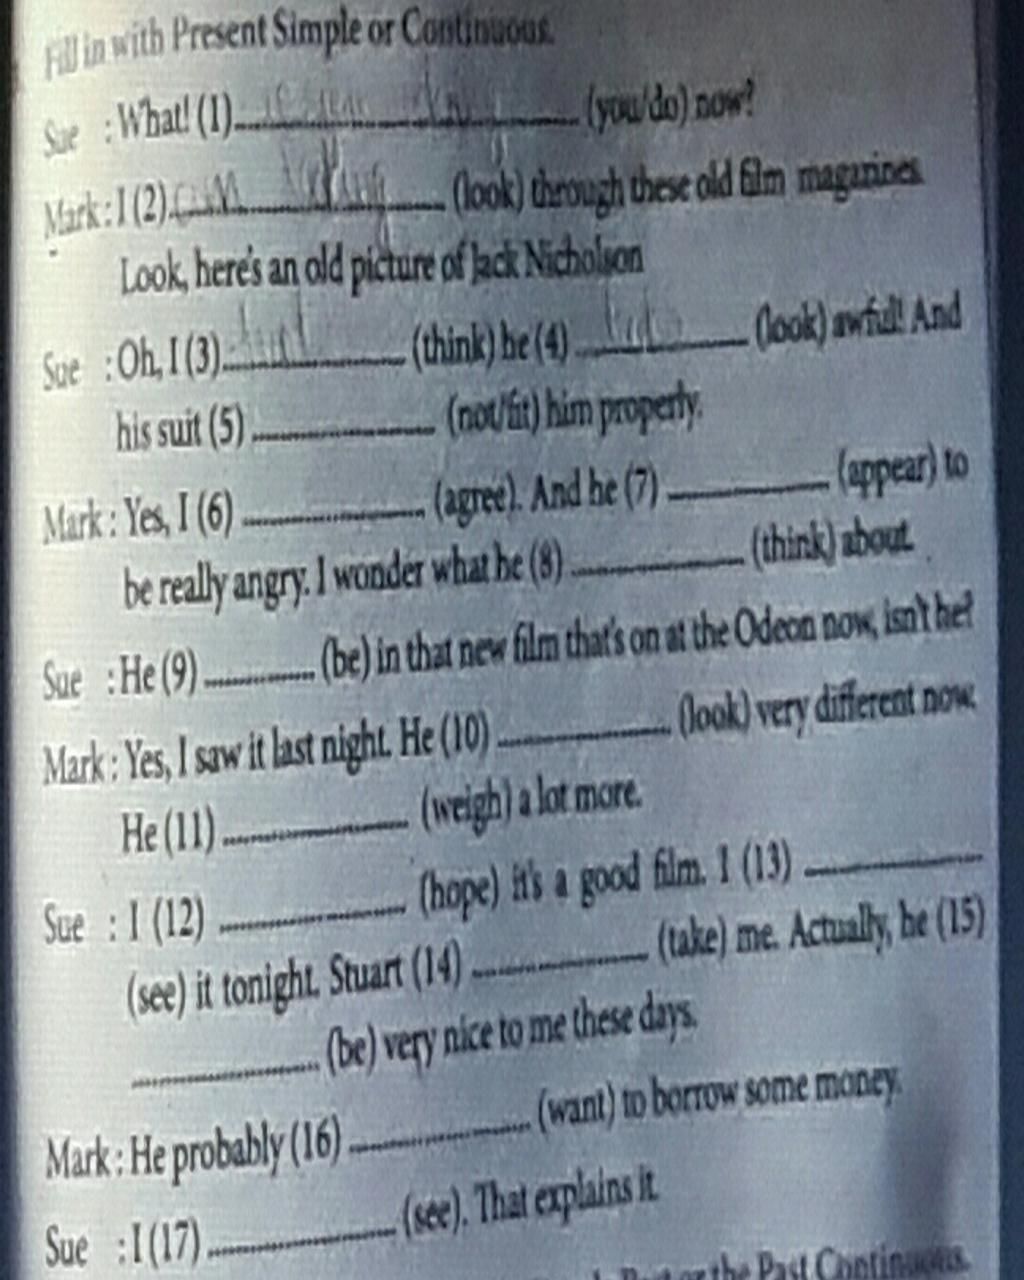 Fill in with Present Simple or Continuous.
Sue : What! (1)........................ (you/do) now?
Mark : I (2)........................ (look) through these old film magazines
Look, here's an old picture of Jack Nicholson
Sue : Oh, I (3)................ (think) he (4) ................ (look) awful! And
his suit (5) ................ (not/fit) him properly.
Mark : Yes, I (6) ................ (agree). And he (7) ................ (appear) to
be really angry. I wonder what he (8) ................ (think) about.
Sue : He (9) ............ (be) in that new film that's on at the Odeon now, isn't he?
Mark : Yes, I saw it last night. He (10) ................ (look) very different now.
He (11) ................ (weigh) a lot more.
Sue : I (12) ................ (hope) it's a good film. I (13) ................
(see) it tonight. Stuart (14) ................ (take) me. Actually, he (15)
................ (be) very nice to me these days.
Mark : He probably (16) ................ (want) to borrow some money.
Sue : I (17) ................ (see). That explains it.
or the Past Continuous.